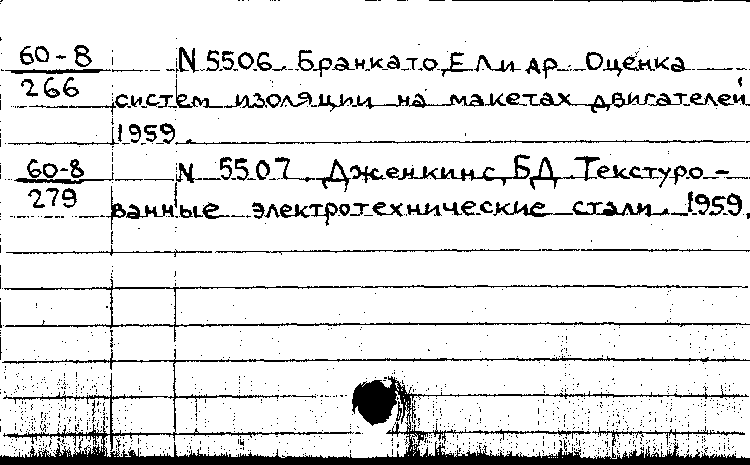 60-8 N 5506. Бранкато, Е Л и др. Оценка
266
систем изоляции на макетах двигателей
1959.
60-8 N 5507. Дженкинс, БД Текстуро-
279
ванные электротехнические стали. 1959.